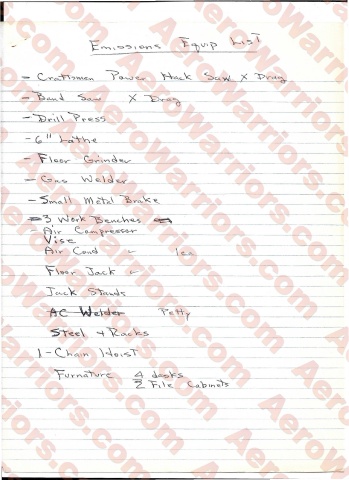 Emissions Equip List
- Craftsman Power Hack Saw X Drag
- Band Saw X Drag
- Drill Press
- 6" Lathe
- Floor Grinder
- Gas Welder
- Small Metal Brake
- 3 Work Benches
- Air Compressor
Vise
Air Cond - 1ea
Floor Jack -
Jack Stands
AC Welder Petty
Steel + Racks
1-Chain Hoist
Furnature 4 desks
2 File Cabinets
AeroWarriors.com